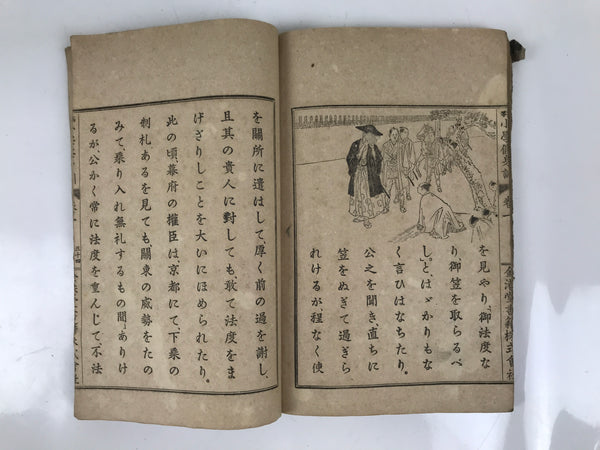 を見やり、御法度な
り御笠を取らるべ
し」と、はゞかりもな
く言ひはなちたり。
公之を聞き、直ちに
笠をぬぎて過ぎら
れけるが程なく使
を關所に遣はして、厚く前の過を謝し、
且其の貴人に對しても敢て法度をま
げざりしことを大いにほめられたり。
此の頃、幕府の權臣は、京都にて、下乘の
制札あるを見ても關東の威勢をたの
みて、乘り入れ無礼するもの間〻ありけ
るが、公かく常に法度を重んじて、不法